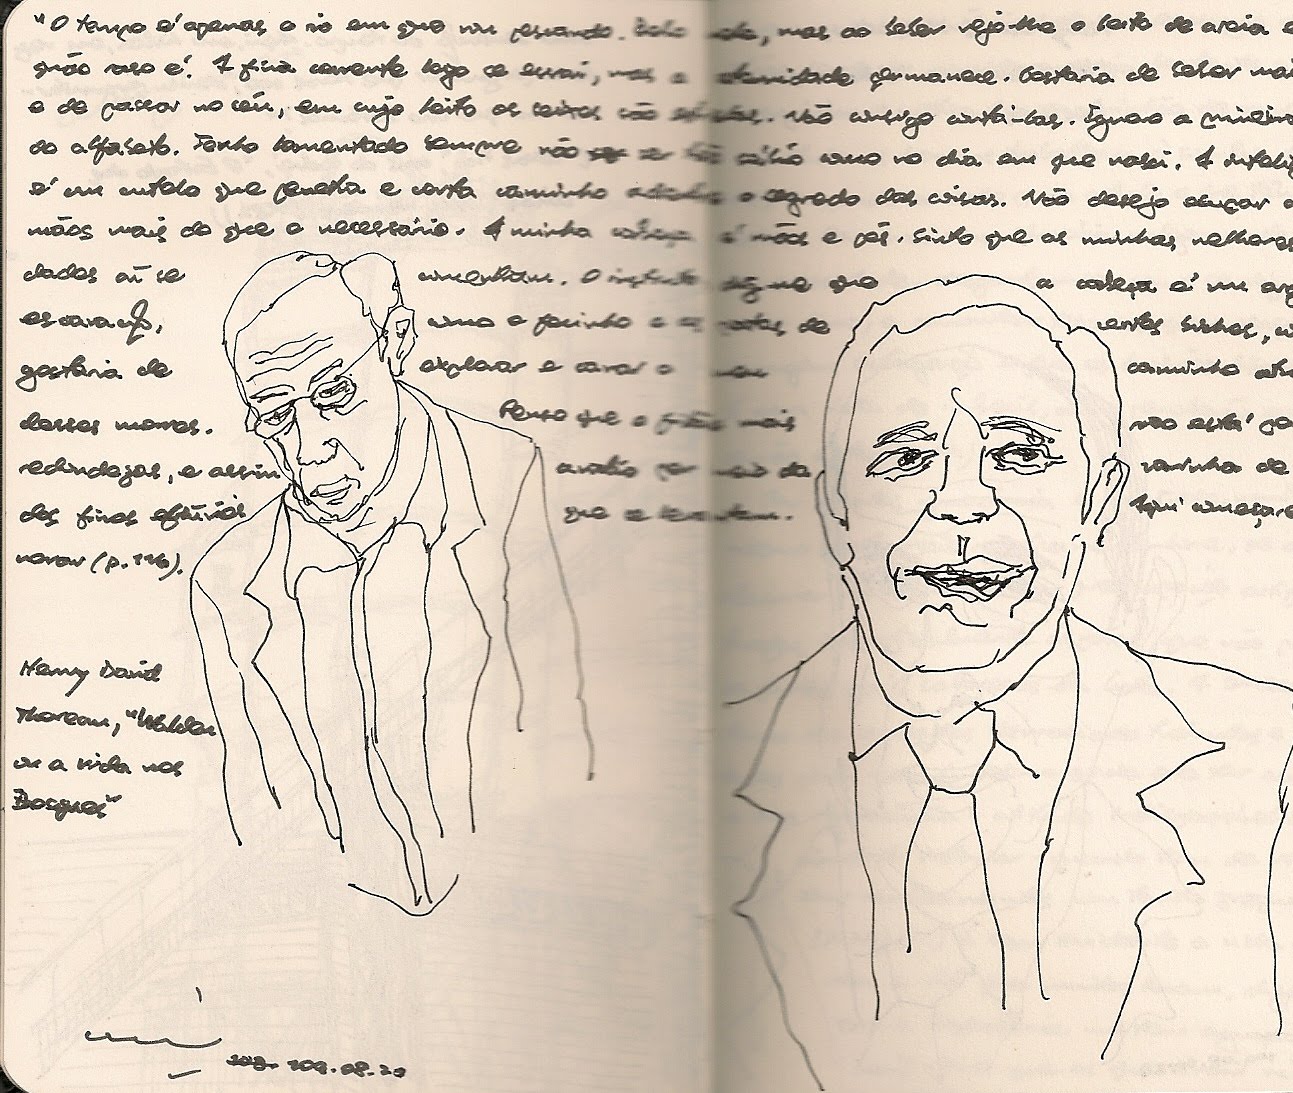 "O tempo é apenas o rio em que vou pescando. Bebo nele, mas ao beber vejo-lhe o leito de areia e
quão raso é. A fina corrente logo se esvai, mas a eternidade permanece. Gostaria de beber mai
e de pescar no céu, em cujo leito os seixos são estrelas. Não consigo contá-las. Ignoro a primeira
do alfabeto. Tenho lamentado sempre não ser tão sábio como no dia em que nasci. A intelig
é um cutelo que penetra e corta caminho adentro o segredo das coisas. Não desejo ocupar a
mãos mais do que o necessário. A minha cabeça é mãos e pés. Sinto que as minhas melhores
dades aí se concentram. O instinto diz-me que a cabeça é um org
escavação, como o focinho e as patas de certos bichos, c
gostaria de explorar e cavar o meu caminho
desses morros. Penso que o filão mais não está
redondezas, e assim avalio por meio da varinha de
dos finos eflúvios que se levantam. Aqui começare
novar (p. 116).
Henry David
Thoreau, "Walden
ou a vida nos
Bosques"
109.08.20